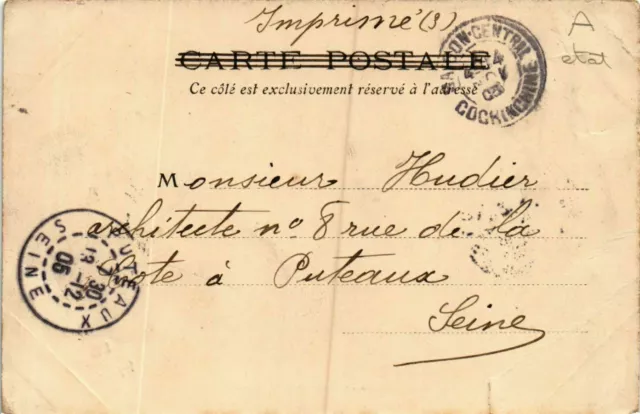 Imprimé (3)
CARTE POSTALE
Ce côté est exclusivement réservé à l'adresse
A
etat
SAIGON-CENTRAL
COCHINCHINE
Monsieur Hudier
architecte n° 8 rue de la
Cote à Puteaux
Seine
PUTEAUX
SEINE
30
12
05